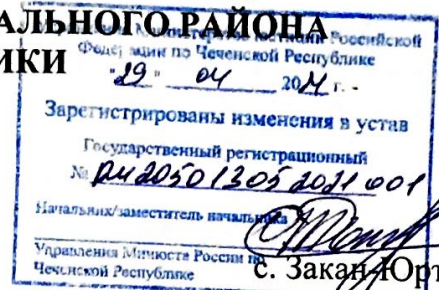 АЛЬНОГО РАЙОНА
ИКИ
Российской
Федерации по Чеченской Республике
"29" 04 2021 г.
Зарегистрированы изменения в устав
Государственный регистрационный
№ RU205013052021001
Начальник/заместитель начальника
Управления Минюста России по
Чеченской Республике
с. Закан-Юрт